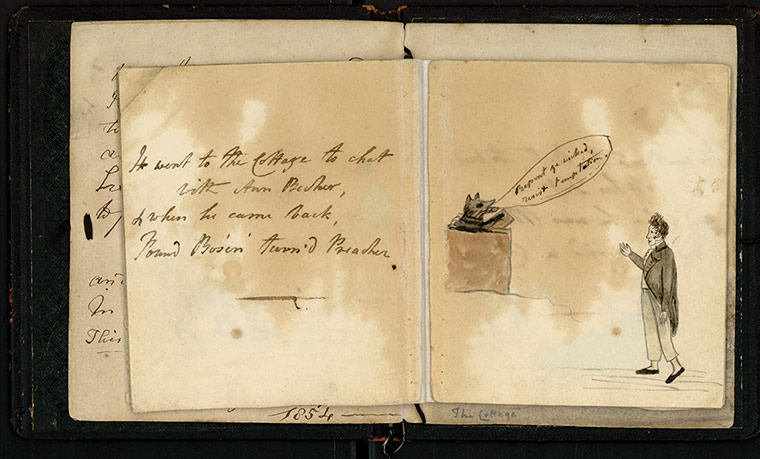 He went to the Cottage to chat
with Ann Becher,
& when he came back,
Found Bos'en turn'd Preacher.
Repent ye wicked,
resist temptation.
and
In
This
1854
The Cottage